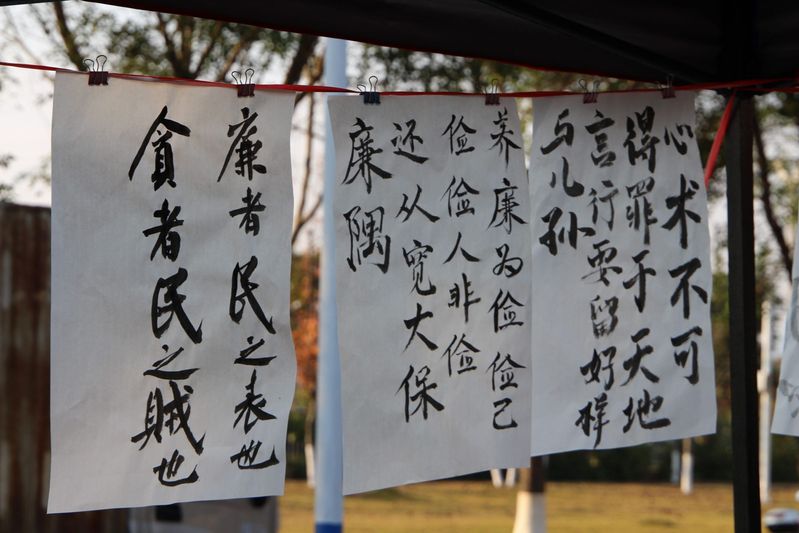 廉者民之表也
貪者民之贼也
养廉为俭俭己
俭俭人非俭
还从宽大保
廉隅
心术不可
得罪于天地
言行要留好样
与儿孙